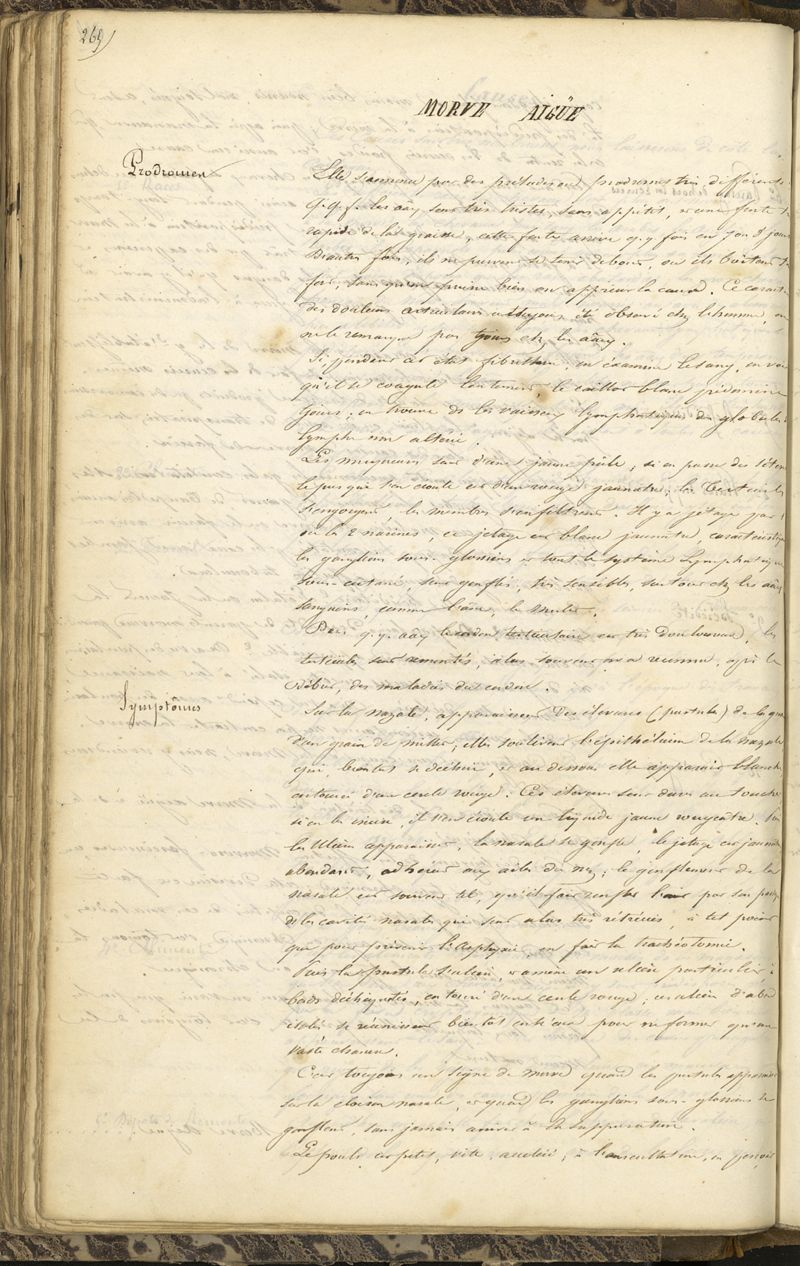 269)
MORVE AIGÜE
Prodromes
Elle s'annonce par des préludes ou prodromes très différents
q.q.f. les aāx sont très tristes, sans appétit, une fonte
rapide de la graisse, cette fonte arrive q.q. fois en 7 ou 8 jours
D'autres fois, ils ne peuvent se tenir debout, ou ils boitent
fort, sans qu'on puisse bien en apprécier la cause. Ce caract
des douleurs articulaires a toujours été observé chez l'homme, on
ne le remarque pas tjours chez les aāux.
Si pendant cet état fébrile, on examine le sang, on voit
qu'il se coagule lentement, le caillot blanc prédomine
tjours; on trouve ds les vaisseaux lymphatiques des globules
lymphe non altérée.
Les muqueuses sont d'une jaune pâle, si on passe des sétons
le pus qui s'en écoule est d'un rouge jaunatre; les testicules
s'engorgent, les membres s'infiltrent. Il y a jetage par
ou les 2 narines, ce jetage est blanc jaunatre, caractéristique
les ganglions sous-glossiens et tout le système lymphatique
sous-cutané, sont gonflés, très sensibles, surtout chez les aāux
sanguins, comme l'âne, le mulet.
Chez q.q. aāx le cordon testiculaire est très douloureux, les
testicules sont remontés, alors souvent on a reconnu, après le
début, des maladies du cordon.
Symptômes
Sur la nazale, apparaissent des élevures (pustules) de la gros
d'un grain de millet, elles soulèvent l'épithélium de la nazale
qui, bientot se déchire, et au dessous elle apparait blanche
entourée d'un cercle rouge. Ces élevures sont dures au toucher
si on les incise, il s'en écoule un liquide jaune rougeatre.
les Ulcères apparaissent, la nasale se gonfle, le jetage est jaunatre
abondant, adhérent aux ailes du nez; le gonflement de la
nasale est souvent tel, qu'il fait ronfler l'air par son passage
ds les cavités nasales qui sont alors très rétrécies, à tel point
que pour prévenir l'asphyxie, on fait la trachéotomie.
Puis la pustule s'ulcère, et amène un ulcère particulier à
bords déchiquetés, entouré d'un cercle rouge, ces ulcères d'abord
isolés se réunissent bientot entr'eux pour ne former qu'un
vaste chancre.
C'est toujours un signe de morve quand les pustules apparaissent
sur la cloison nasale, et quand les ganglions sous-glossiens se
gonflent, sans jamais arriver à la suppuration.
Le pouls est petit, vite, accéléré, à l'auscultation, on perçoit